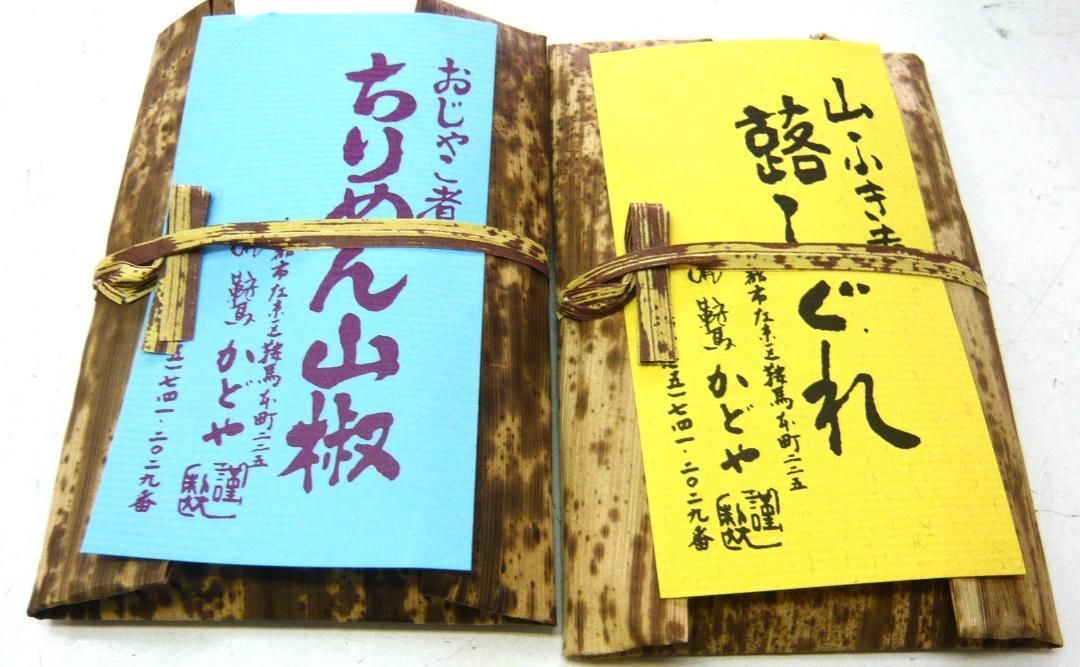 おじゃこ煮
ちりめん山椒
都市左京区鞍馬本町二二五
鞍馬 かどや 謹製
五)七四一・二〇二九番
山ふきま
蕗しぐれ
都市左京区鞍馬本町二二五
鞍馬 かどや 謹製
五)七四一・二〇二九番